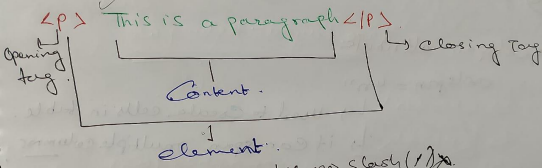 <p> This is a paragraph </p>
Opening tag.
Closing Tag
Content.
element.
no slash (/)